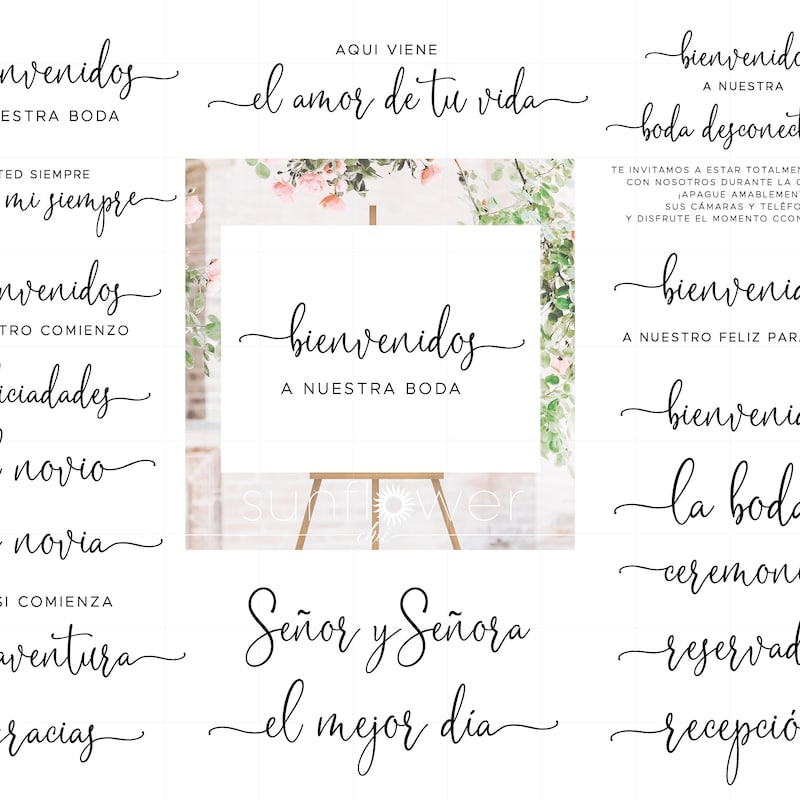 nvenidos
ESTRA BODA
TED SIEMPRE
mi siempre
nvenidos
TRO COMIENZO
iciadades
novio
novia
SI COMIENZA
aventura
gracias
AQUI VIENE
el amor de tu vida
bienvenidos
A NUESTRA BODA
sunflower
chic
Señor y Señora
el mejor día
bienvenido
A NUESTRA
boda desconect
TE INVITAMOS A ESTAR TOTALMEN
CON NOSOTROS DURANTE LA
¡APAGUE AMABLEMEN
SUS CÁMARAS Y TELÉFO
Y DISFRUTE EL MOMENTO CCON
bienvenid
A NUESTRO FELIZ PARA
bienvenid
la boda
ceremoni
reservad
recepció